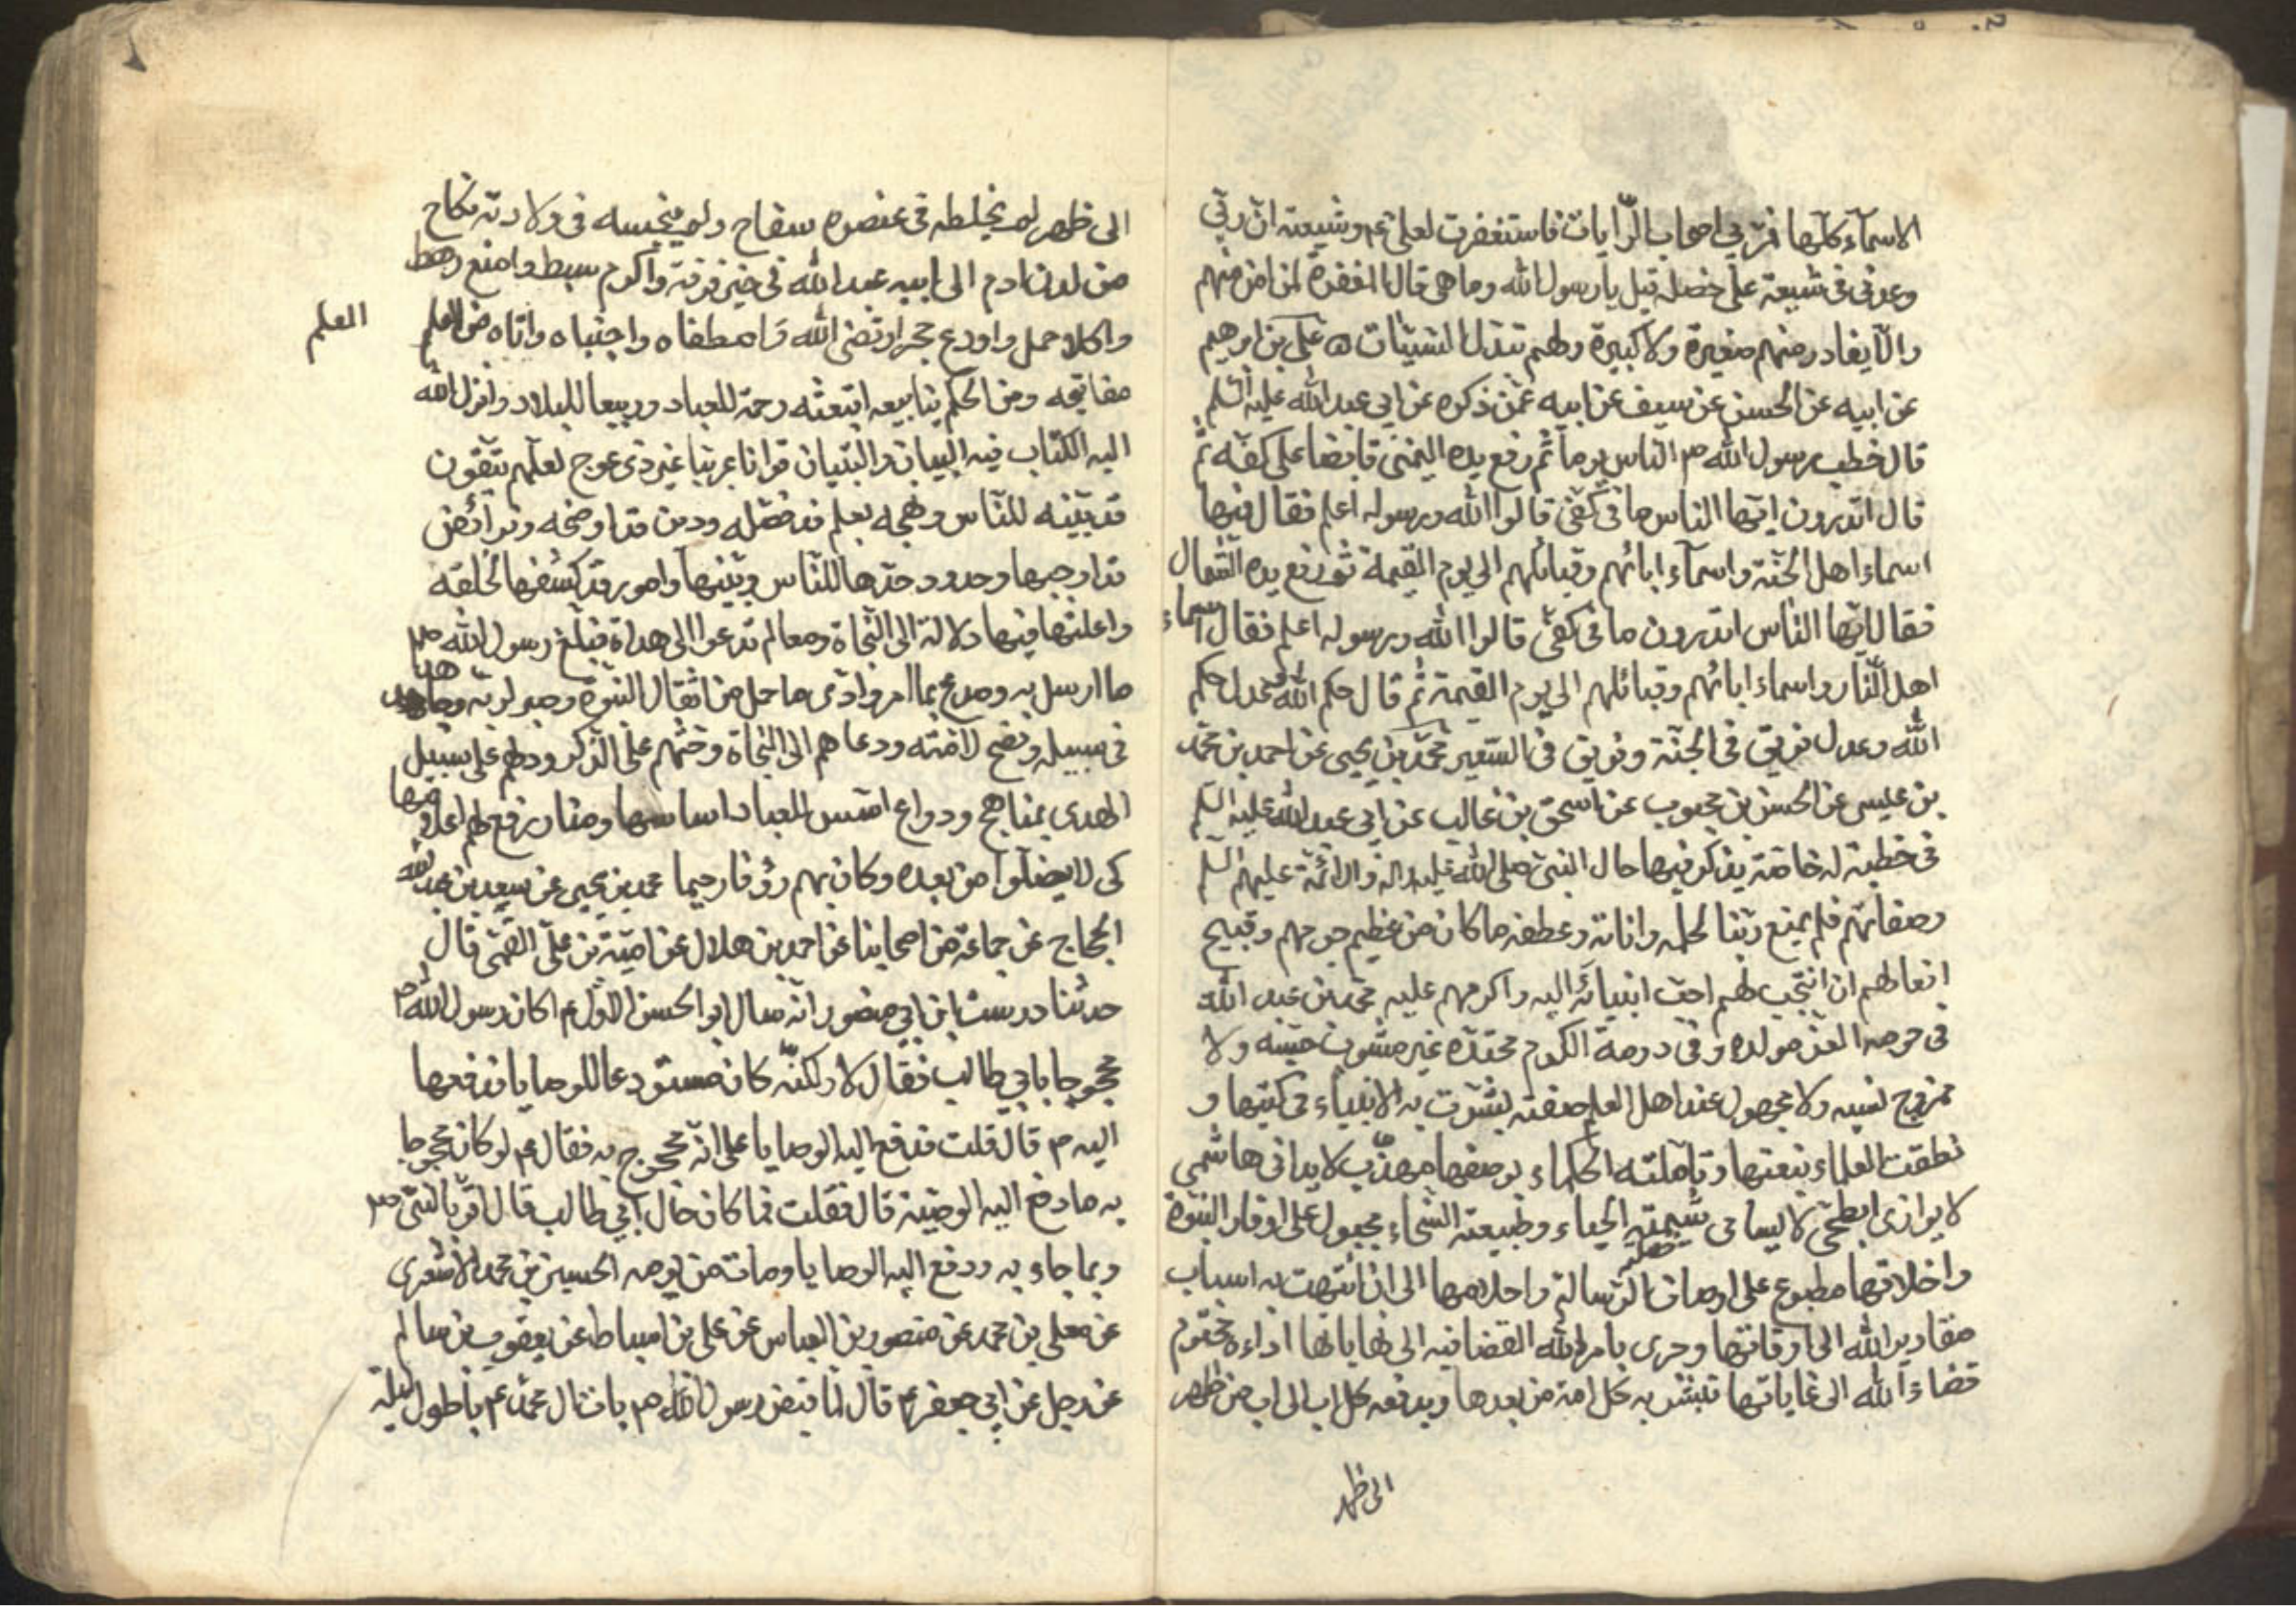 الاسماء كلها فمرّ بي اصحاب الرّايات فاستغفرت لعلي ع وشيعته انّ ربّي
وعدني في شيعة علي خصلة قيل يا رسول الله وما هي قال المغفرة لمن امن منهم
وان لا يغادر منهم صغيرة ولا كبيرة ولهم تبدل السّيّئات ه علي بن ابرهيم
عن ابيه عن الحسن عن سيف عن ابيه عمّن ذكره عن ابي عبد الله عليه السّلم
قال خطب رسول الله ص الناس يوما ثم رفع يده اليمنى قابضا على كفّه ثم
قال اتدرون ايّها الناس ما في كفّي قالوا الله ورسوله اعلم فقال فيها
اسماء اهل الجنّة واسماء ابائهم وقبائلهم الى يوم القيمة ثم رفع يده الشّمال
فقال ايّها النّاس اتدرون ما في كفّي قالوا الله ورسوله اعلم فقال اسماء
اهل النّار واسماء ابائهم وقبائلهم الى يوم القيمة ثم قال حكم الله وعدل حكم
الله وعدل فريق في الجنّة وفريق في السّعير محمّد بن يحيى عن احمد بن محمّد
بن عليسى عن الحسن بن محبوب عن اسحق بن غالب عن ابي عبد الله عليه السلم
في خطبة له خاصّة يذكر فيها حال النبيّ صلى الله عليه واله والائمّة عليهم السّلم
وصفاتهم فلم يمنع ربّنا لحلمه واناته وعطفه ما كان من عظيم جرمهم وقبيح
افعالهم ان انتجب لهم احبّ انبيائه اليه واكرمهم عليه محمّد بن عبد الله
في حومة العزّ مولده وفي دومة الكرم محتده غير مشوب حسبه ولا
ممزوج نسبه ولا مجهول عند اهل العلم صفته بشّرت به الانبياء في كتبها و
نطقت العلماء بنعتها وتاملته الحكماء بوصفها مهذّب لا يدانى هاشمي
لا يوازى ابطحيّ لا يسامى شيمته الحياء وطبيعته السّخاء مجبول على اوقار النبوّة
واخلاقها مطبوع على اوصاف الرّسالة واحلامها الى ان انتهت به اسباب
مقادير الله الى اوقاتها وجرى بامر الله القضا فيه الى نهاياتها اداءه محتوم
قضاء الله الى غاياتها تبشّر به كل امة من بعدها ويدفعه كل اب الى اب من ظهر
الى ظهر
الى ظهر لم يخلطه في عنصره سفاح ولم ينجسه في ولادته نكاح
من لدن ادم الى ابيه عبد الله في خير فرقة واكرم سبط وامنع رهط
واكلا حمل واودع حجر ارتضى الله واصطفاه واجتباه واتاه من العلم
العلم
مفاتيحه ومن الحكم ينابيعه ابتعثه رحمة للعباد وربيعا للبلاد وانزل الله
اليه الكتاب فيه البيان والتبيان قرانا عربيا غير ذي عوج لعلّهم يتّقون
قد بيّنه للنّاس ونهجه بعلم قد فصّله ودين قد اوضحه وفرائض
قد اوجبها وحدود حدّها للنّاس وبيّنها وامور قد كشفها لخلقه
واعلنها فيها دلالة الى النّجاة ومعالم تدعوا الى هداة فبلّغ رسول الله ص
ما ارسل به وصدع بما امر وادّى ما حمل من اثقال النبوّة وصبر لربّه وجاهد
في سبيله ونصح لامّته ودعاهم الى النّجاة وحثّهم على الذّكر ودلهم على سبيل
الهدى بمناهج ودواع اسّس للعباد اساسها ومنار رفع لهم اعلامها
كي لا يضلّوا من بعده وكان بهم رؤفا رحيما محمد بن يحيى عن سعد بن عبد الله
الحجاج عن جماعة من اصحابنا عن احمد بن هلال عن اميّة بن علي القمّي قال
حدثنا درست ابن ابي منصور انّه سال ابو الحسن الاول ع اكان رسول الله ص
محجوجا بابي طالب فقال لا ولكنّه كان مستودعا للوصايا فدفعها
اليه ص قال قلت فدفع اليه الوصايا على انّه محجوج به فقال ع لو كان محجوجا
به ما دفع اليه الوصيّة قال فقلت فما كان حال ابي طالب قال اقرّ بالنبيّ ص
وبما جاء به ودفع اليه الوصايا ومات من يومه الحسين بن محمد الاشعري
عن معلى بن محمد عن منصور بن العباس عن علي بن اسباط عن يعقوب بن سالم
عن رجل عن ابي جعفر ع قال لما قبض رسول الله ص بات ال محمد ع باطول ليلة